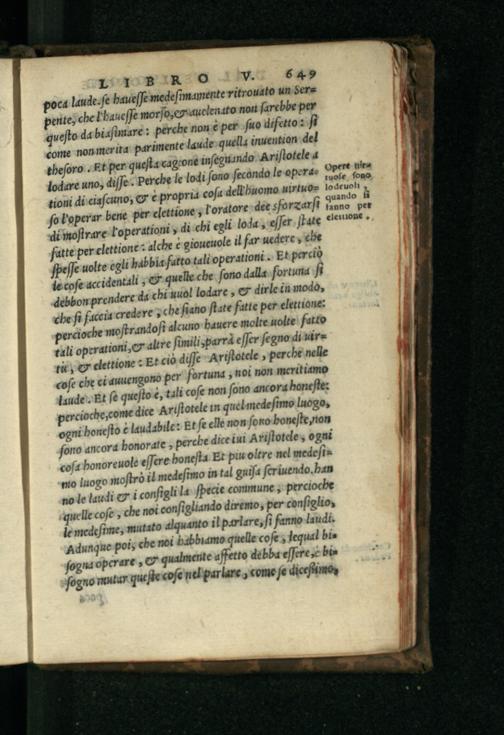 LIBRO V. 649
poca laude. se hauesse medesimamente ritrouato un Ser-
pente, che l'hauesse morso, & auelenato non sarebbe per
questo da biasimare: perche non è per suo difetto: si
come non merita parimente laude quella inuention del
thesoro. Et per questa cagione insegnando Aristotele a
lodare uno, disse. Perche le lodi sono secondo le opera-
tioni di ciascuno, & è propria cosa dell'huomo uirtuo-
so l'operar bene per elettione, l'oratore dee sforzarsi
di mostrare l'operationi, di chi egli loda, esser state
fatte per elettione: alche è gioueuole il far uedere, che
spesse uolte egli habbia fatto tali operationi. Et perciò
le cose accidentali, & quelle che sono dalla fortuna si
debbon prendere da chi uuol lodare, & dirle in modo,
che si faccia credere, che siano state fatte per elettione:
percioche mostrandosi alcuno hauere molte uolte fatto
tali operationi, & altre simili, parrà esser segno di uir-
tù, & elettione: Et ciò disse Aristotele, perche nelle
cose che ci auuengono per fortuna, noi non meritiamo
laude. Et se questo è, tali cose non sono ancora honeste:
percioche, come dice Aristotele in quel medesimo luogo,
ogni honesto è laudabile: Et se elle non sono honeste, non
sono ancora honorate, perche dice iui Aristotele, ogni
cosa honoreuole essere honesta Et piu oltre nel medesi-
mo luogo mostrò il medesimo in tal guisa scriuendo. han
no le laudi & i consigli la specie commune, percioche
quelle cose, che noi consigliando diremo, per consiglio,
le medesime, mutato alquanto il parlare, si fanno laudi.
Adunque poi, che noi habbiamo quelle cose, lequal bi-
sogna operare, & qualmente affetto debba essere, è bi-
sogno mutar queste cose nel parlare, come se dicessimo,
Opere uir-
tuose sono
lodeuoli,
quando si
fanno per
elettione.